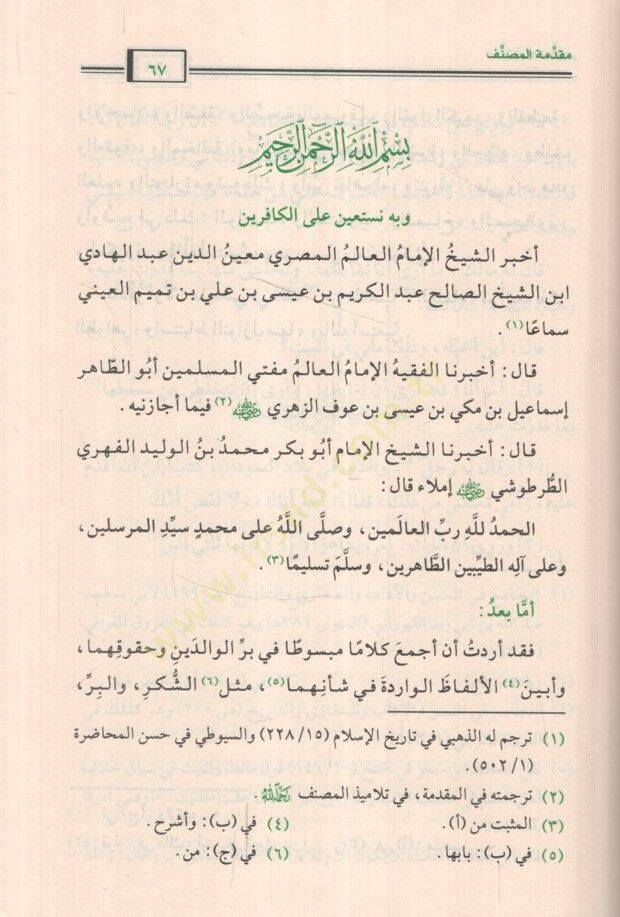 مقدِّمة المصنِّف
٦٧
بِسْمِ اللَّهِ الرَّحْمَنِ الرَّحِيمِ
وبه نستعين على الكافرين
أخبر الشيخُ الإمامُ العالمُ المصري معينُ الدين عبد الهادي
ابن الشيخ الصالح عبد الكريم بن عيسى بن علي بن تميم العيني
سماعًا(١).
قال: أخبرنا الفقيهُ الإمامُ العالمُ مفتي المسلمين أبُو الطَّاهر
إسماعيل بن مكي بن عيسى بن عوف الزهري ﵁(٢) فيما أجازنيه.
قال: أخبرنا الشيخ الإمام أبُو بكر محمدُ بنُ الوليد الفهري
الطُّرطوشي ﵁ إملاء قال:
الحمدُ للَّهِ ربِّ العالَمين، وصلَّى اللَّهُ على محمدٍ سيِّدِ المرسلين،
وعلى آلِهِ الطيِّبين الطَّاهرين، وسلَّمَ تسليمًا(٣).
أمَّا بعدُ:
فقد أردتُ أن أجمعَ كلامًا مبسوطًا في برِّ الوالدَينِ وحقوقِهما،
وأبينَ(٤) الألفاظَ الواردةَ في شأنِهما(٥)، مثل(٦) الشُّكرِ، والبِرِّ،
(١) ترجم له الذهبي في تاريخ الإسلام (١٥/ ٢٢٨) والسيوطي في حسن المحاضرة
(١/ ٥٠٢).
(٢) ترجمته في المقدمة، في تلاميذ المصنف رحمه الله.
(٣) المثبت من (أ). (٤) في (ب): وأشرح.
(٥) في (ب): بابها. (٦) في (ج): من.